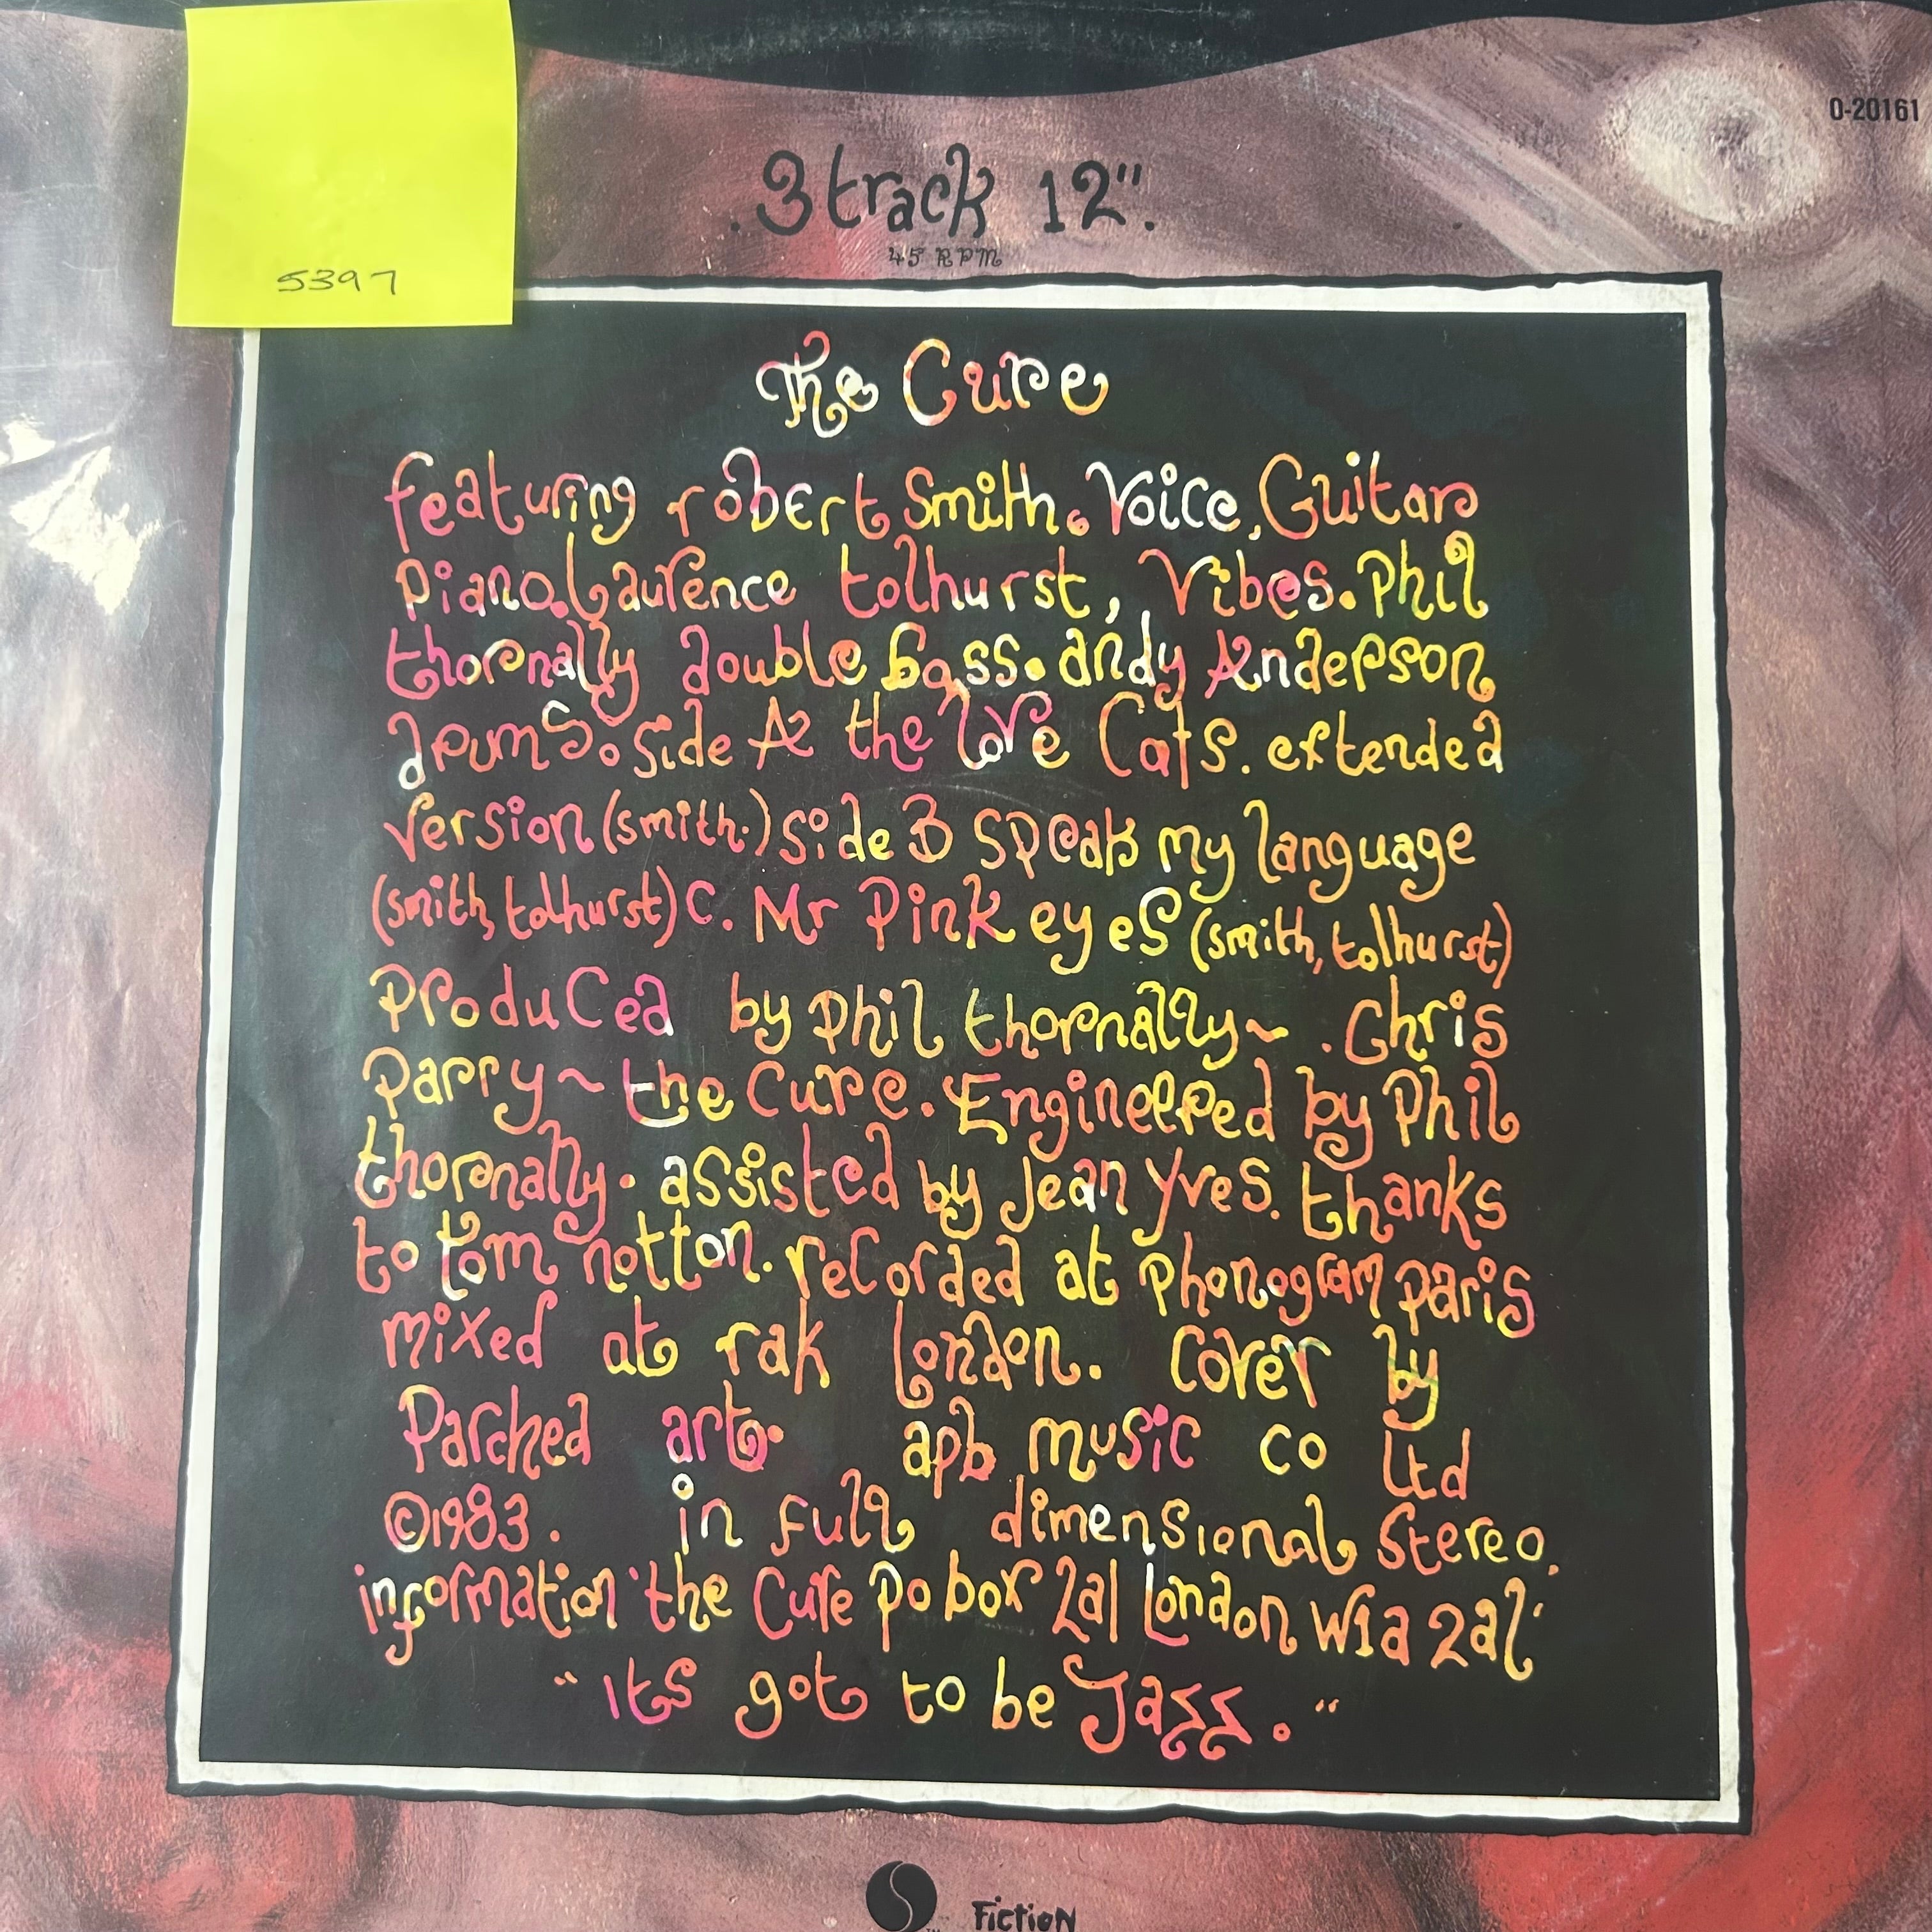 0-20161
.3 track 12".
45 RPM
5397
The Cure
featuring robert Smith. Voice, Guitar
piano. Laurence tolhurst, Vibes. Phil
thornally double bass. andy Anderson
drums. side A the love Cats. extended
version (smith.) side B speak my language
(smith, tolhurst) C. Mr Pink eyes (smith, tolhurst)
Produced by phil thornally~ . Chris
Parry ~ the Cure. Engineered by Phil
thornally. assisted by Jean Yves. thanks
to tom notton. recorded at phonogram paris
mixed at rak london. Cover by
Parched art. apb music co ltd
©1983. in full dimensional Stereo.
information 'the Cure po box 2al london w1a 2al'
"Its got to be Jazz."
S
TM
Fiction